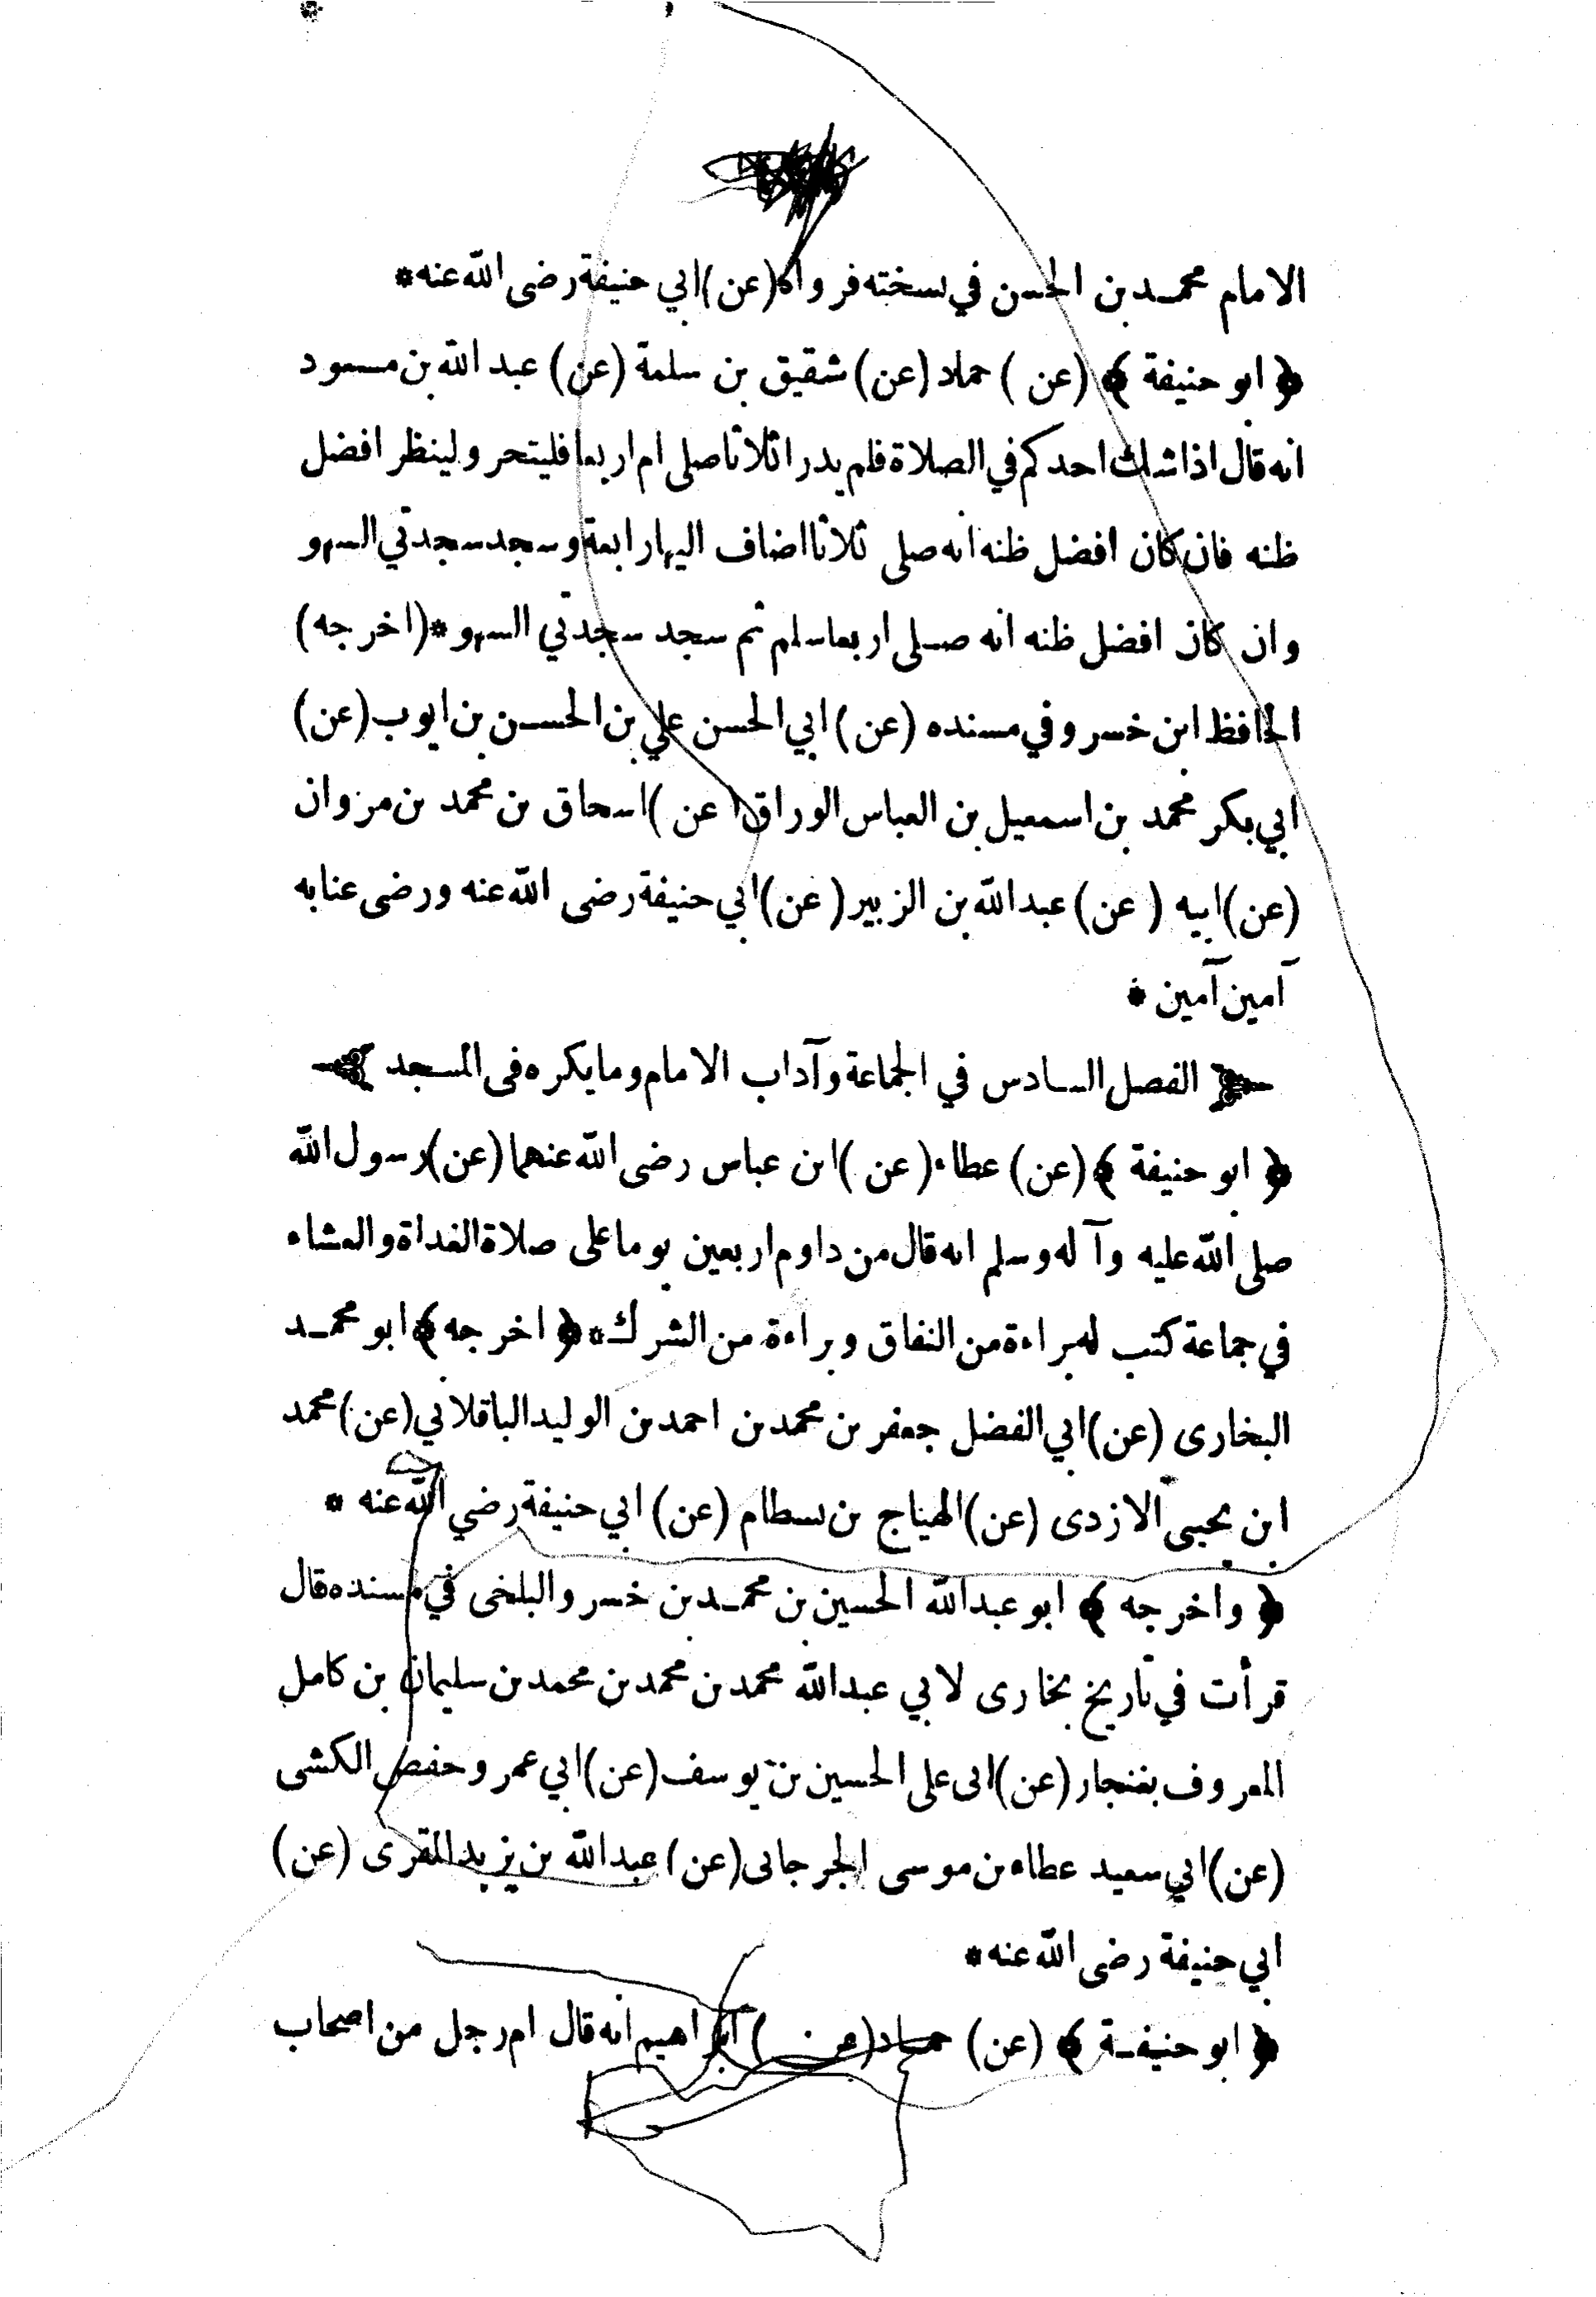 الامام محمد بن الحسن في نسخته فرواه (عن) ابي حنيفة رضى الله عنه *
﴿ ابو حنيفة ﴾ (عن) حماد (عن) شقيق بن سلمة (عن) عبد الله بن مسعود
انه قال اذا شك احدكم في الصلاة فلم يدر اثلاثا صلى ام اربعا فليتحر ولينظر افضل
ظنه فان كان افضل ظنه انه صلى ثلاثا اضاف اليها رابعة وسجد سجدتي السهو
وان كان افضل ظنه انه صلى اربعا سلم ثم سجد سجدتي السهو * (اخرجه)
الحافظ ابن خسرو في مسنده (عن) ابي الحسن علي بن الحسن بن ايوب (عن)
ابي بكر محمد بن اسمعيل بن العباس الوراق (عن) اسحاق بن محمد بن مروان
(عن) ابيه (عن) عبد الله بن الزبير (عن) ابي حنيفة رضى الله عنه ورضى عنا به
آمين آمين *
الفصل السادس في الجماعة وآداب الامام وما يكره فى المسجد
﴿ ابو حنيفة ﴾ (عن) عطاء (عن) ابن عباس رضى الله عنهما (عن) رسول الله
صلى الله عليه وآله وسلم انه قال من داوم اربعين يوما على صلاة الغداة والعشاء
في جماعة كتب له براءة من النفاق وبراءة من الشرك * ﴿ اخرجه ﴾ ابو محمد
البخارى (عن) ابي الفضل جعفر بن محمد بن احمد بن الوليد الباقلاني (عن) محمد
ابن يحيى الازدى (عن) الهياج بن بسطام (عن) ابي حنيفة رضي الله عنه *
﴿ واخرجه ﴾ ابو عبد الله الحسين بن محمد بن خسرو البلخى في مسنده قال
قرأت في تاريخ بخارى لابي عبد الله محمد بن محمد بن محمد بن سليمان بن كامل
المعروف بغنجار (عن) ابى على الحسين بن يوسف (عن) ابي عمرو حفص الكشى
(عن) ابي سعيد عطاء بن موسى الجرجانى (عن) عبد الله بن يزيد المقرى (عن)
ابي حنيفة رضى الله عنه *
﴿ ابو حنيفة ﴾ (عن) حماد (عن) ابراهيم انه قال ام رجل من اصحاب